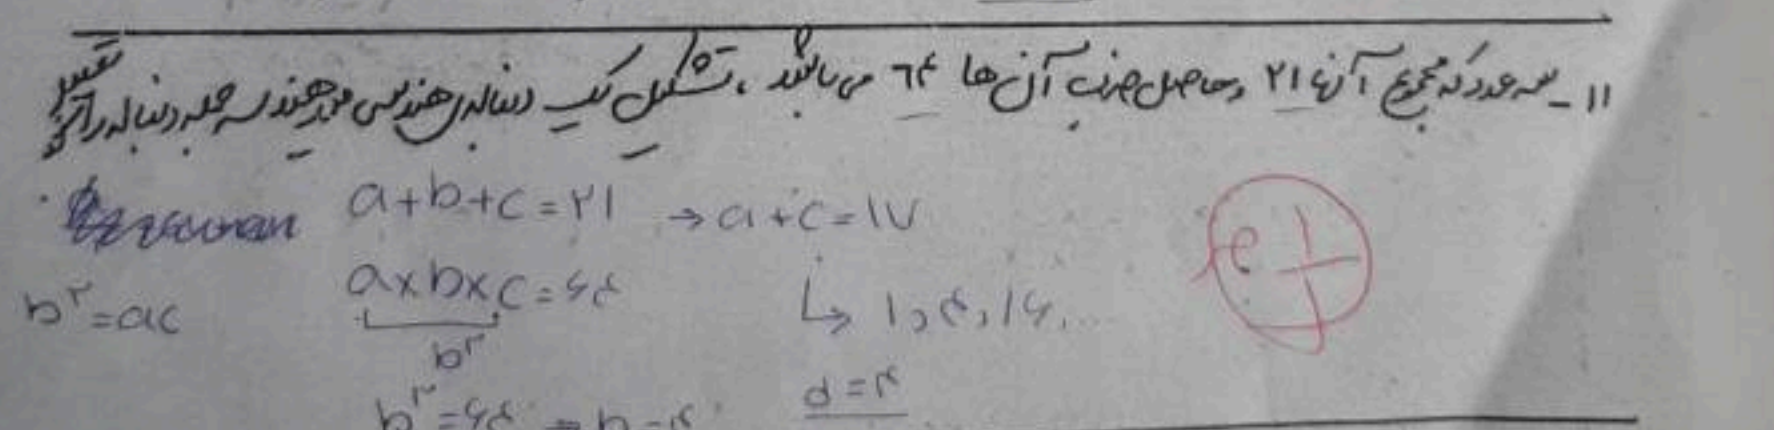 ۱۱ - سه عدد که مجموع آنها ۲۱ و حاصل ضرب آن ها ۶۴ می باشد ، تشکیل یک دنباله‌ی هندسی می‌دهند سه جمله دنباله را تعیین کنید
a+b+c=۲۱ → a+c=۱۷
b^۲=ac
a×b×c=۶۴
↳ ۱,۴,۱۶,...
b^۳
b^۳=۶۴ → b=۴
d=۴